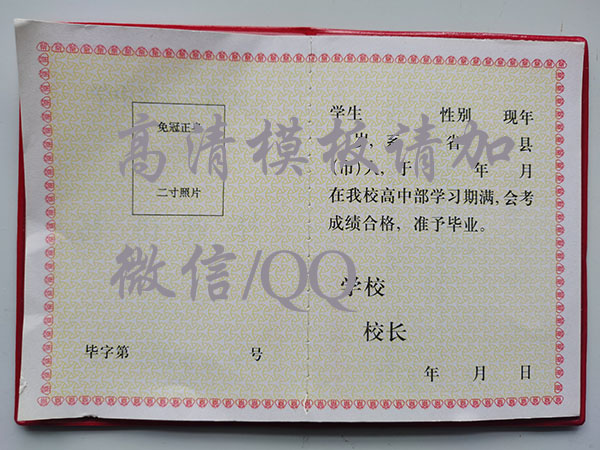 免冠正
二寸照片
毕字第 号
学生 性别 现年
岁，系 省 县
(市)人，于 年 月
在我校高中部学习期满，会考
成绩合格，准予毕业。
学校
校长
年 月 日
高清模板请加
微信/QQ